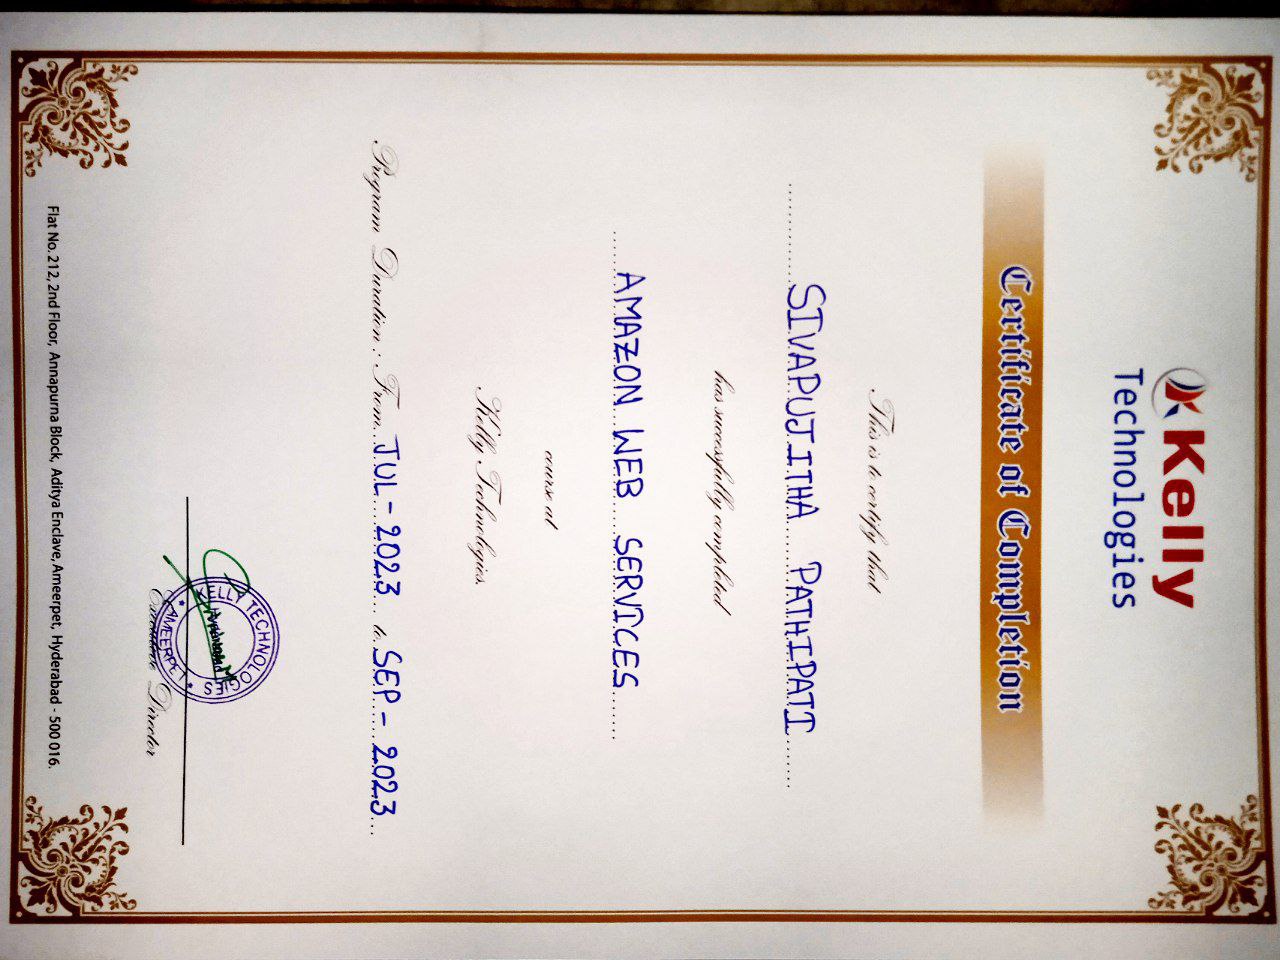 Kelly
Technologies
Certificate of Completion
This is to certify that
SIVAPUJITHA PATHIPATI
has successfully completed
AMAZON WEB SERVICES
course at
Kelly Technologies.
Program Duration : From JUL - 2023 to SEP - 2023
KELLY TECHNOLOGIES
* AMEERPET *
Executive Director
Flat No. 212, 2nd Floor, Annapurna Block, Aditya Enclave, Ameerpet, Hyderabad - 500 016.